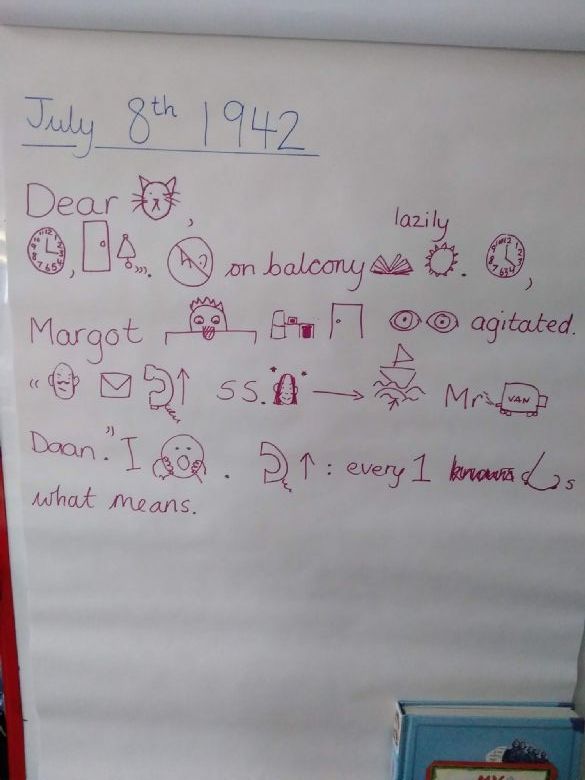 July 8th 1942
Dear ,
lazily
, . on balcony . ,
Margot agitated.
" SS. Mr VAN
Daan." I . : every 1 knows s
what means.